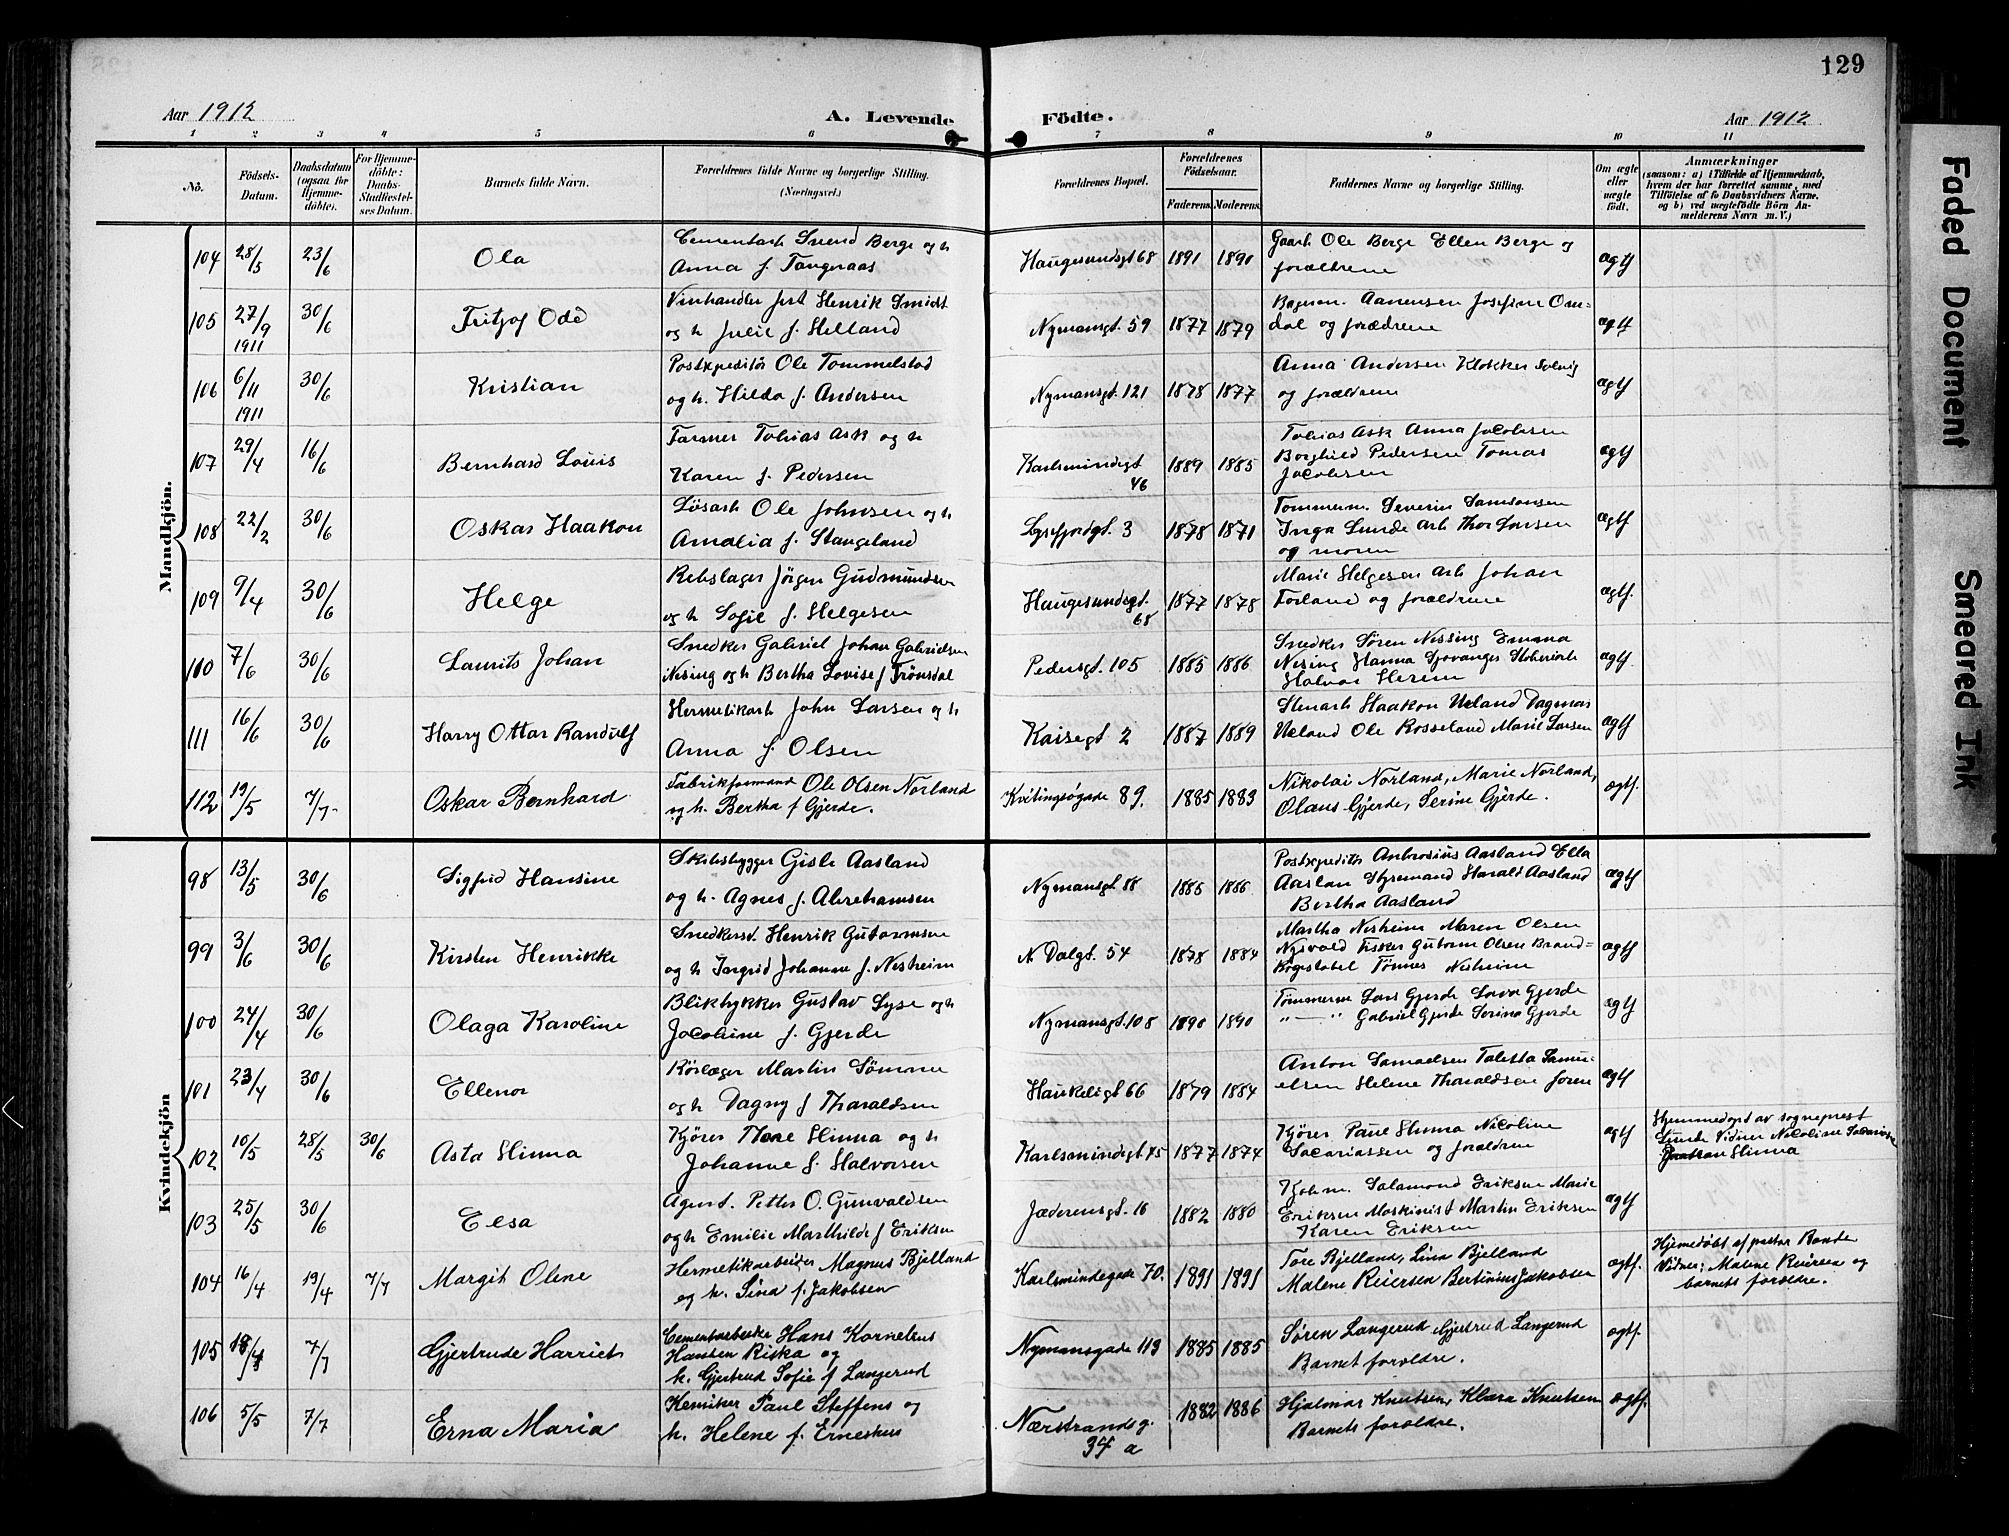 129
Aar 1912
A. Levende Födte.
Aar 1912
1 2 3 4 5 6 7 8 9 10 11
No.
Födsels-Datum.
Daabsdatum (ogsaa for Hjemme-döbte).
For Hjemme-döbte: Daabs-Stadfæstel-ses Datum.
Barnets fulde Navn.
Forældrenes fulde Navne og borgerlige Stilling.
(Næringsvei.)
Forældrenes Bopæl.
Forældrenes Födselsaar.
Faderens. Moderens.
Faddernes Navne og borgerlige Stilling.
Om ægte eller uægte født.
Anmærkninger
(saasom: a) i Tilfælde af Hjemmedaab,
hvem der har forrettet samme, med
Tilföielse af to Daabsvidners Navne.
og b) ved uægtefödte Börn An-
melderens Navn m. V.)
Mandkjön.
104 28/5 23/6 Ola
Cementarb Svend Berge og h
Anna f. Tangnaas
Haugesundsgt 68 1891 1890
Gaarb Ole Berge Ellen Berge og
forældrene
ægtf
105 27/9 1911 30/6 Fritjof Odd
Vinhandler fork Henrik Smidt
og h Julie f. Helland
Nymansgt. 59 1877 1879
Aanensen Josefine Om-
dal og forældrene
ægtf
106 6/11 1911 30/6 Kristian
Postexpeditør Ole Tommelstad
og h. Hilda f. Andersen
Nymansgt. 121 1878 1877
Anna Andersen Klokker Solvig
og forældrene
ægtf
107 29/4 16/6 Bernhard Louis
Farmer Tobias Ask og h
Karen f. Pedersen
Karlsmindegt 46 1889 1885
Tobias Ask Anna Jacobsen
Borghild Pedersen Tomas
Jacobsen
ægtf
108 22/2 30/6 Oskar Haakon
Løsarb Ole Johnsen og h
Amalia f. Stangeland
Lysefjordgt. 3 1878 1871
Tømmerm. Severin Samsonsen
Inga Lunde Arb Thor Larsen
og moren
ægtf
109 9/4 30/6 Helge
Rebslager Jörgen Gudmundsen
og h Sofie f. Helgesen
Haugesundsgt. 68 1877 1878
Marie Helgesen Arb Johan
Forland og forældrene
ægtf.
110 7/6 30/6 Laurits Johan
Snedker Gabriel Johan Gabrielsen
Nising og h Bertha Lovise f Trönsdal
Pedersgt. 105 1885 1886
Snedker Søren Nissing Emma
Nesing Hanna
Halvor
ægtf.
111 16/6 30/6 Harry Ottar Randulf
Hermetikarb John Larsen og h
Anna f. Olsen
Kaisegt 2 1887 1889
Stenarb Haakon Ueland Dagmar
Ueland Ole Rosseland Marie Larsen
ægtf
112 19/5 7/7 Oskar Bernhard
Fabrikformand Ole Olsen Norland
og h. Bertha f Gjerde.
Kvitingsøgade 89. 1885 1883
Nikolai Norland, Marie Norland,
Olaus Gjerde, Serine Gjerde.
ægtf.
Kvindekjön
98 13/5 30/6 Sigfrid Hansine
Skibsbygger Gisle Aasland
og h. Agnes f. Abrahamsen
Nymansgt 88 1885 1886
Postexpeditør Ambrosius Aasland Ella
Aaslan Styremand Harald Aasland
Bertha Aasland
ægtf
99 3/6 30/6 Kirsten Henrikke
Snedkersv. Henrik Gutormsen
og h Ingrid Johanne f. Nesheim
N. Dalgt. 54 1878 1884
Martha Nesheim Maren Olsen
Nysvold Fisker Gutorm Olsen Brand-
Tønnes Nesheim
ægtf
100 24/4 30/6 Olaga Karoline
Blikhykker Gustav Lyse og h
Jacobine f. Gjerde
Nymansgt. 108 1890 1890
Tømmerm Lars Gjerde Lava Gjerde
" — " Gabriel Gjerde Serina Gjerde
ægtf
101 23/4 30/6 Ellenor
Rörlæger Martin Sømme
og h Dagny f Tharaldsen
Haukeligt 66 1879 1884
Anton Samuelsen Taletta Samu-
elsen Helene Tharaldsen foren
ægtf
102 10/5 28/5 30/6 Asta Hinna
Kjörer Thore Hinna og h
Johanne f. Halvorsen
Karlsmindegt 45 1877 1874
Kjörer Paul Hinna Nicoline
Sacariassen og forældrene
ægtf
Hjemmedøpt av sogneprest
Lunde Vidner Nicoline
Hinna
103 25/5 30/6 Elsa
Agent. Petter O. Gunvaldsen
og h Emilie Marthilde f Eriksen
Jæderensgt. 16 1882 1880
Kjøbm. Salamond Eriksen Marie
Eriksen Maskinist Martin Eriksen
Karen Eriksen
ægtf
104 16/4 19/4 7/7 Margit Oline
Hermetikarbeider Magnus Bjelland
og h. Sina f. Jakobsen
Karlsmindegade 70. 1891 1891
Tore Bjelland, Lina Bjelland
Malene Reiersen Bertinius Jakobsen
ægtf.
Hjemedøbt af pastor Rande
Vidner: Malene Reiersen og
barnets foreldre.
105 18/4 7/7 Gjertrude Harriet
Cementarbeider Hans Kornelius
Hansen Riska og
h. Gjertrud Sofie f Langerud
Nymansgade 119 1885 1885
Søren Langerud Gjertrud Langerud
Barnet foreldre.
ægtf.
106 5/5 7/7 Erna Maria
Kemiker Paul Steffens og
h. Helene f. Erneskus
Nærstrandsg. 34 a 1882 1886
Hjalmar Knutsen, Klara Knutsen
Barnets foreldre.
ægtf.
Faded Document
Smeared Ink